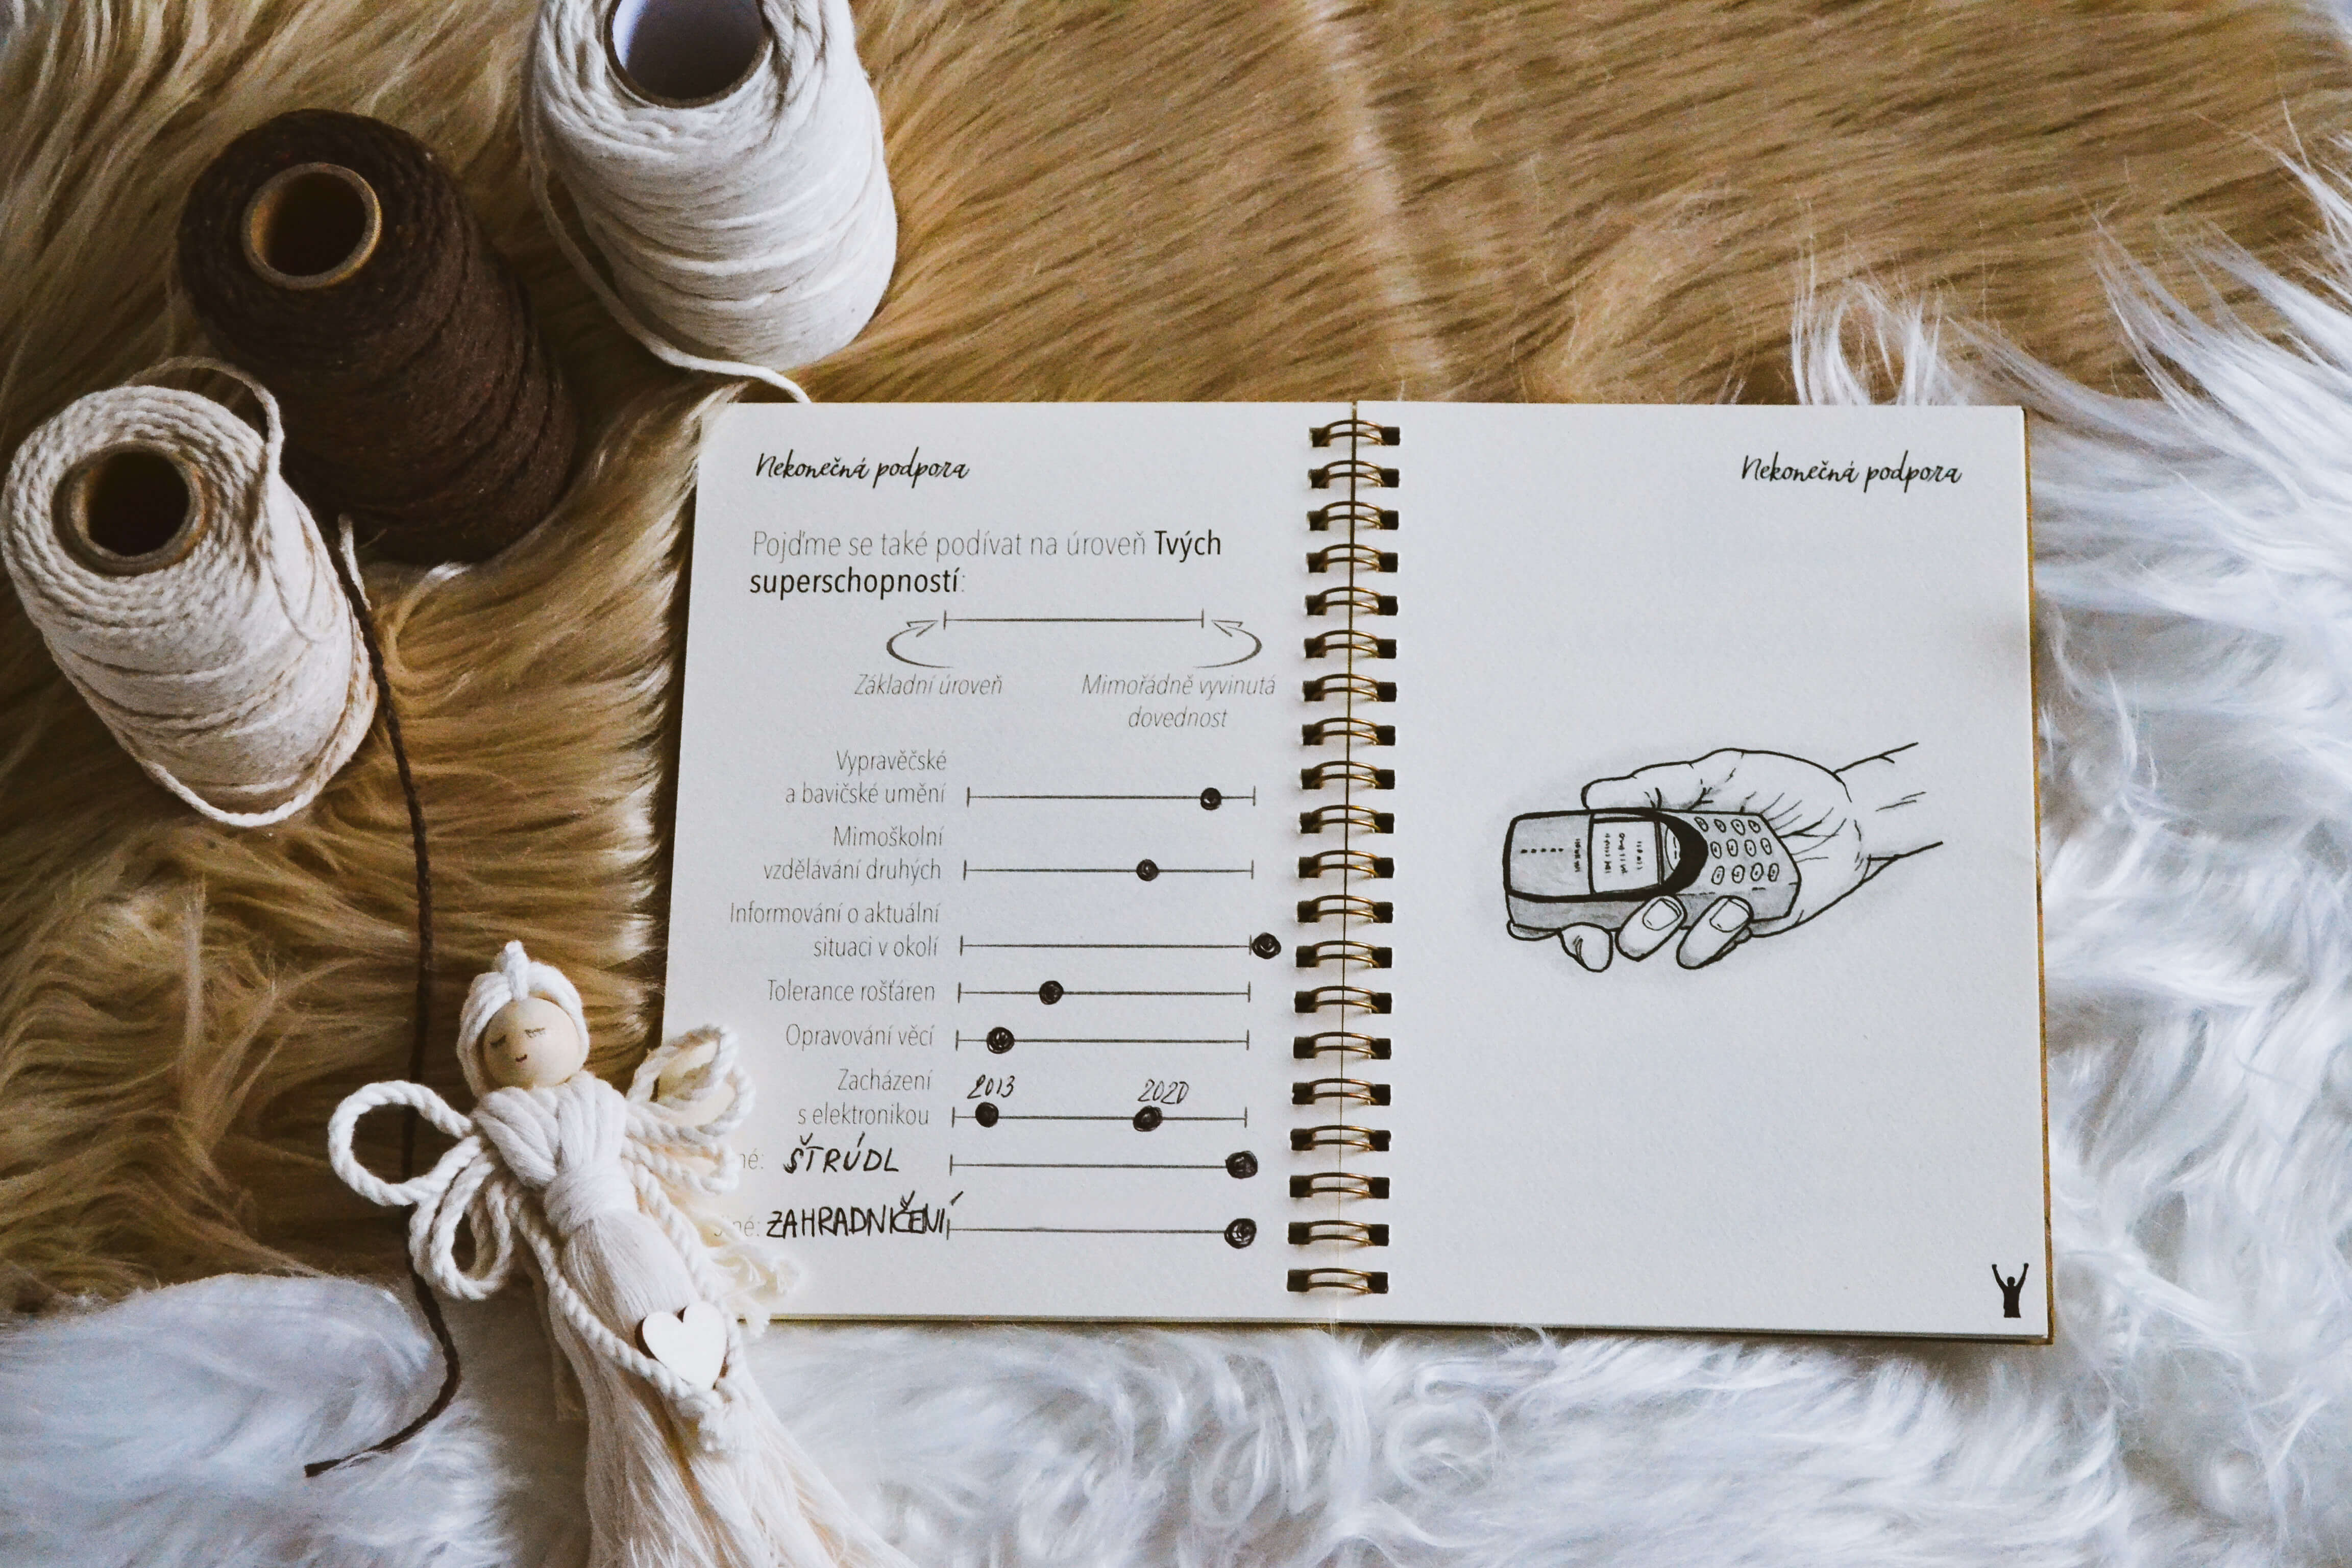 Nekonečná podpora
Pojďme se také podívat na úroveň Tvých
superschopností:
Základní úroveň
Mimořádně vyvinutá
dovednost
Vypravěčské
a bavičské umění
Mimoškolní
vzdělávání druhých
Informování o aktuální
situaci v okolí
Tolerance rošťáren
Opravování věcí
Zacházení
s elektronikou
2013 2020
né: ŠTRÚDL
né: ZAHRADNIČENÍ
Nekonečná podpora